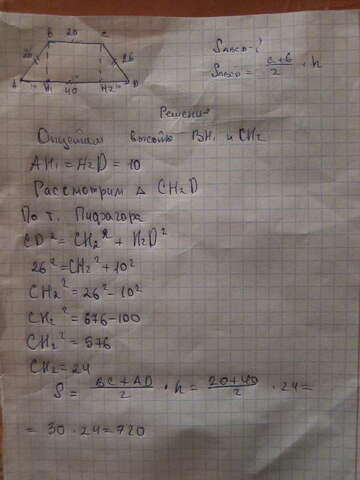 B 20 C
26 26
A 10 H1 40 H2 10 D
SABCD - ?
SABCD = a+b/2 · h
Решение
Опустим высоты BH1 и CH2
AH1 = H2D = 10
Рассмотрим △ CH2D
По т. Пифагора
CD² = CH2² + H2D²
26² = CH2² + 10²
CH2² = 26² - 10²
CH2² = 676 - 100
CH2² = 576
CH2 = 24
S = BC + AD/2 · h = 20+40/2 · 24 =
= 30 · 24 = 720